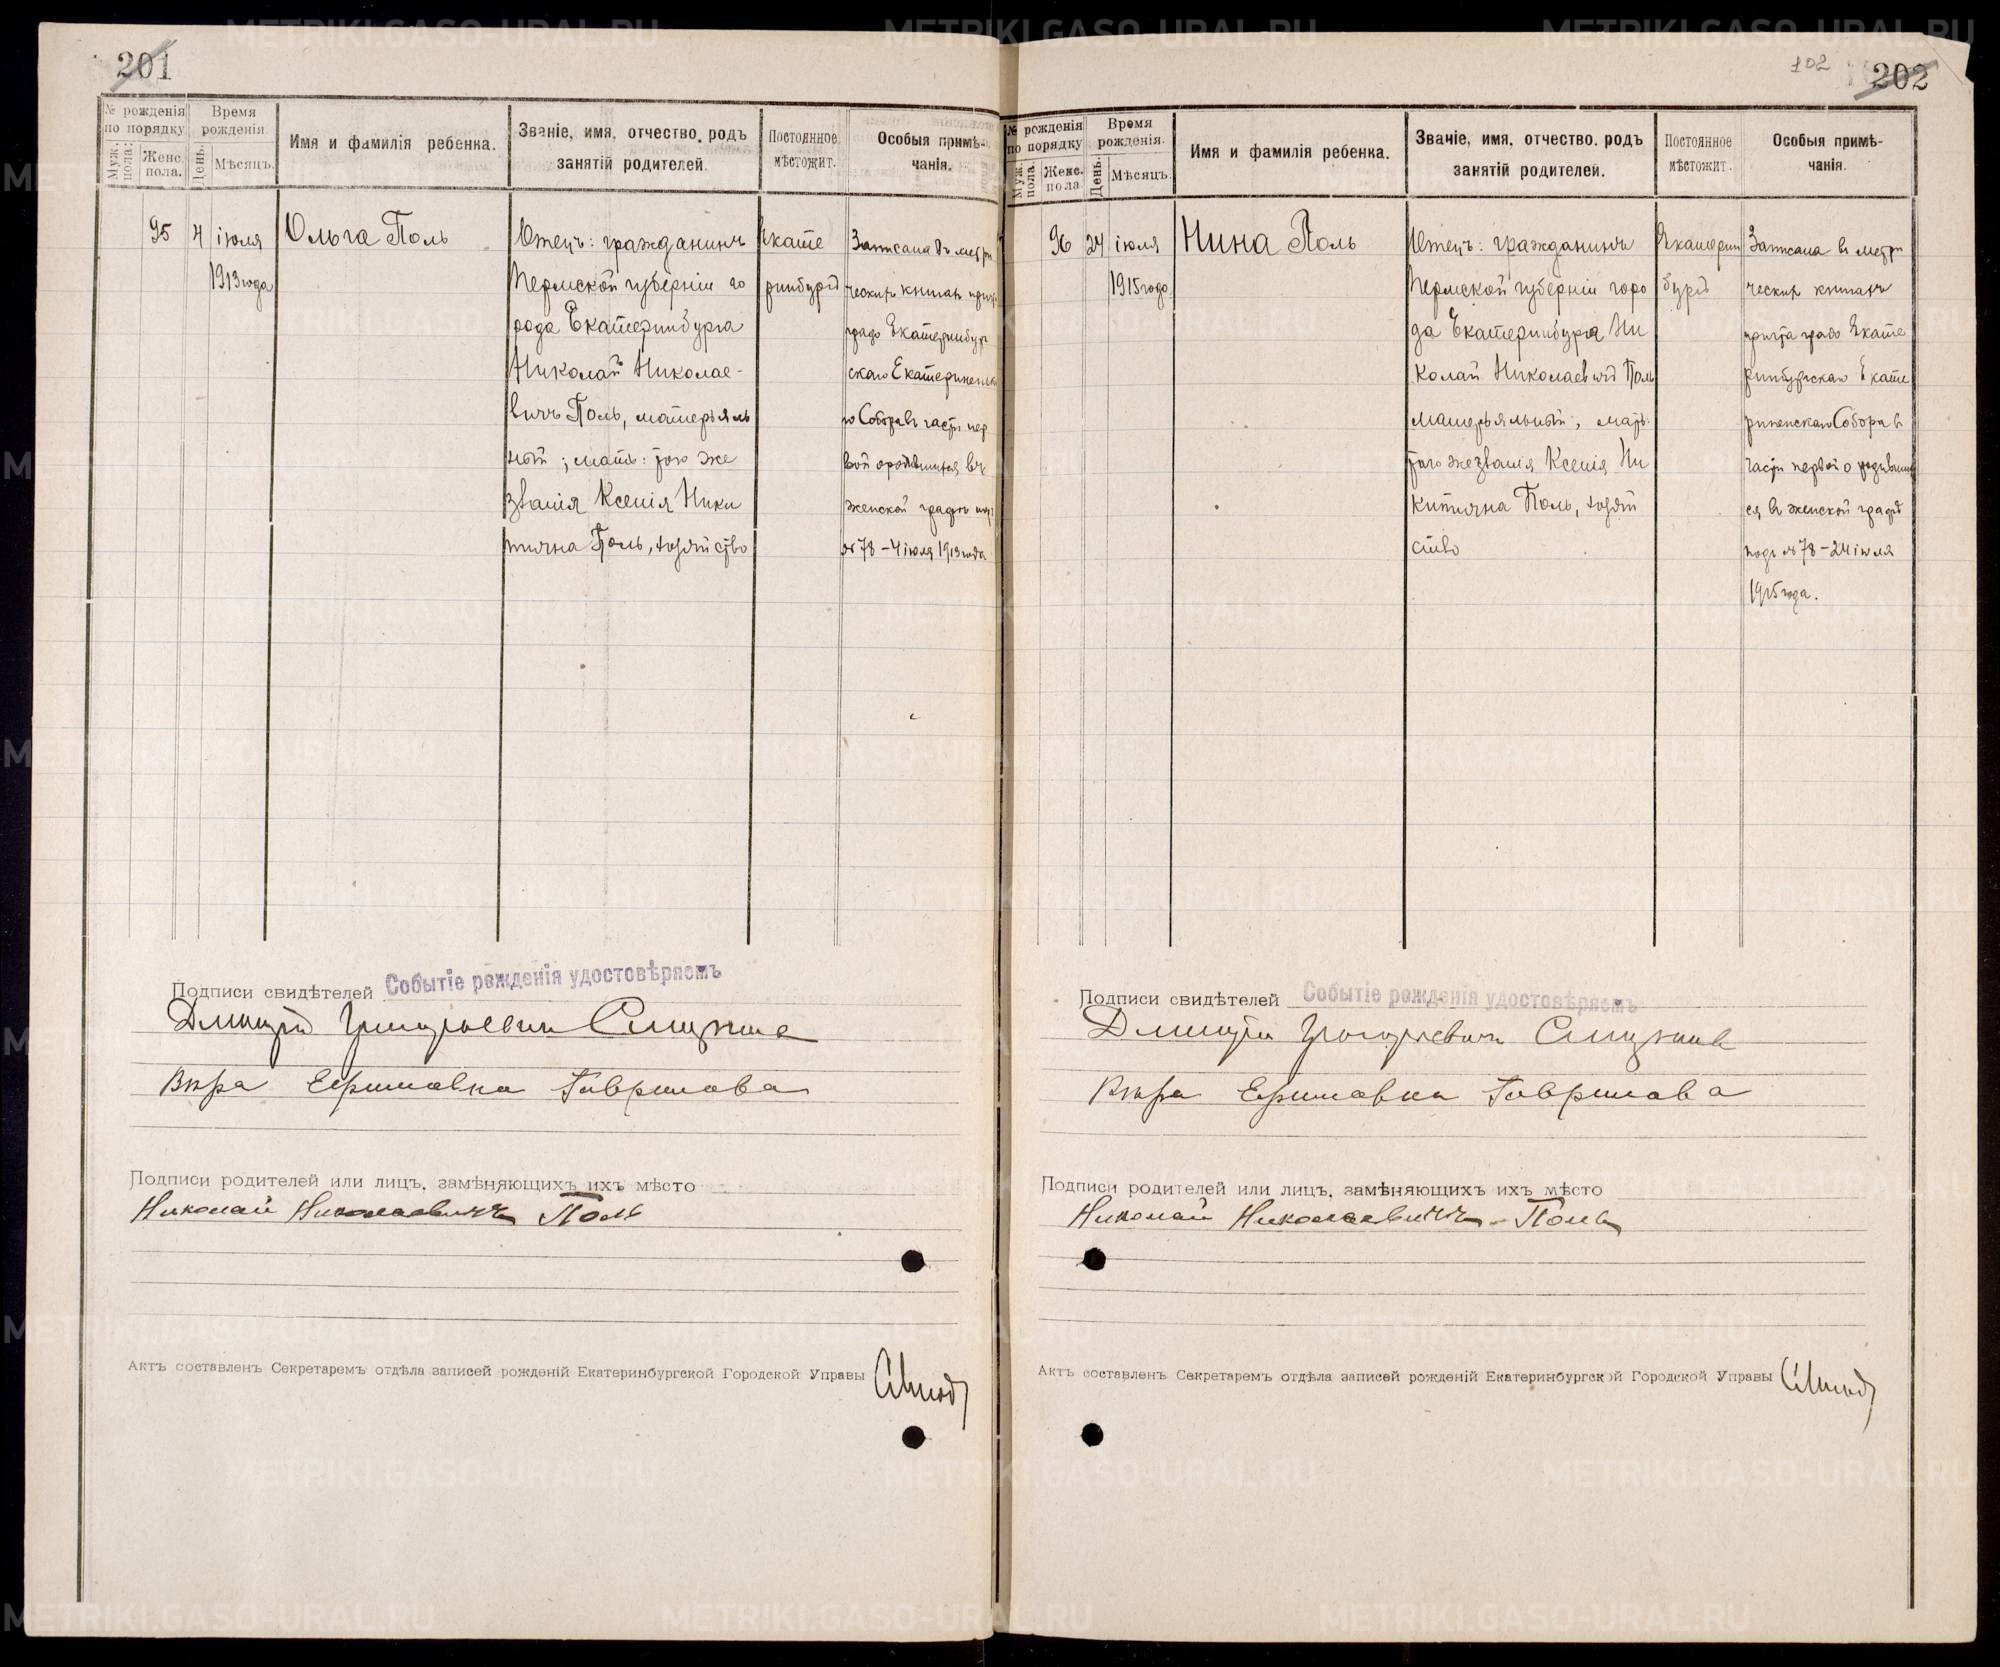 201
№ рожденія по порядку
Время рожденія
Имя и фамилія ребенка.
Званіе, имя, отчество, родъ занятій родителей.
Постоянное мѣстожит.
Особыя примѣчанія.
Муж. пола.
Женс. пола.
День.
Мѣсяцъ.
95
4
іюля
1913 года
Ольга Поль
Отецъ: гражданинъ
Пермской губерніи го
рода Екатеринбурга
Николай Николае-
вичъ Поль, матерьяль
ный; мать: того же
званія Ксенія Ники
тична Поль, хозяйство
Екате
ринбургъ
Записана въ метри
ческихъ книгахъ причта
градо Екатеринбург
скаго Екатерининска
го Собора въ части пер
вой о родившихся въ
женской графѣ подъ
№ 78 – 4 іюля 1913 года
Подписи свидѣтелей
Событіе рожденія удостовѣряемъ
Дмитрій Григорьевич
Вѣра Ефимовна Гаврилова
Подписи родителей или лицъ, замѣняющихъ ихъ мѣсто
Николай Николаевичъ Поль
Актъ составленъ Секретаремъ отдѣла записей рожденій Екатеринбургской Городской Управы
102
202
№ рожденія по порядку
Время рожденія.
Имя и фамилія ребенка.
Званіе, имя, отчество, родъ занятій родителей.
Постоянное мѣстожит.
Особыя примѣчанія.
Муж. пола.
Женс. пола
День.
Мѣсяцъ.
96
24
іюля
1915 года
Нина Поль
Отецъ: гражданинъ
Пермской губерніи горо
да Екатеринбурга Ни
колай Николаевичъ Поль
матерьяльный; мать:
того же званія Ксенія Ни
китична Поль, хозяй
ство
Екатерин
бургъ
Записана въ метри
ческихъ книгахъ
причта градо Екате
ринбургскаго Екате
рининскаго Собора въ
части первой о родивших
ся въ женской графѣ
подъ № 78 – 24 іюля
1915 года.
Подписи свидѣтелей
Событіе рожденія удостовѣряемъ
Дмитрій Григорьевичъ
Вѣра Ефимовна Гаврилова
Подписи родителей или лицъ, замѣняющихъ ихъ мѣсто
Николай Николаевичъ Поль
Актъ составленъ Секретаремъ отдѣла записей рожденій Екатеринбургской Городской Управы
METRIKI.GASO-URAL.RU